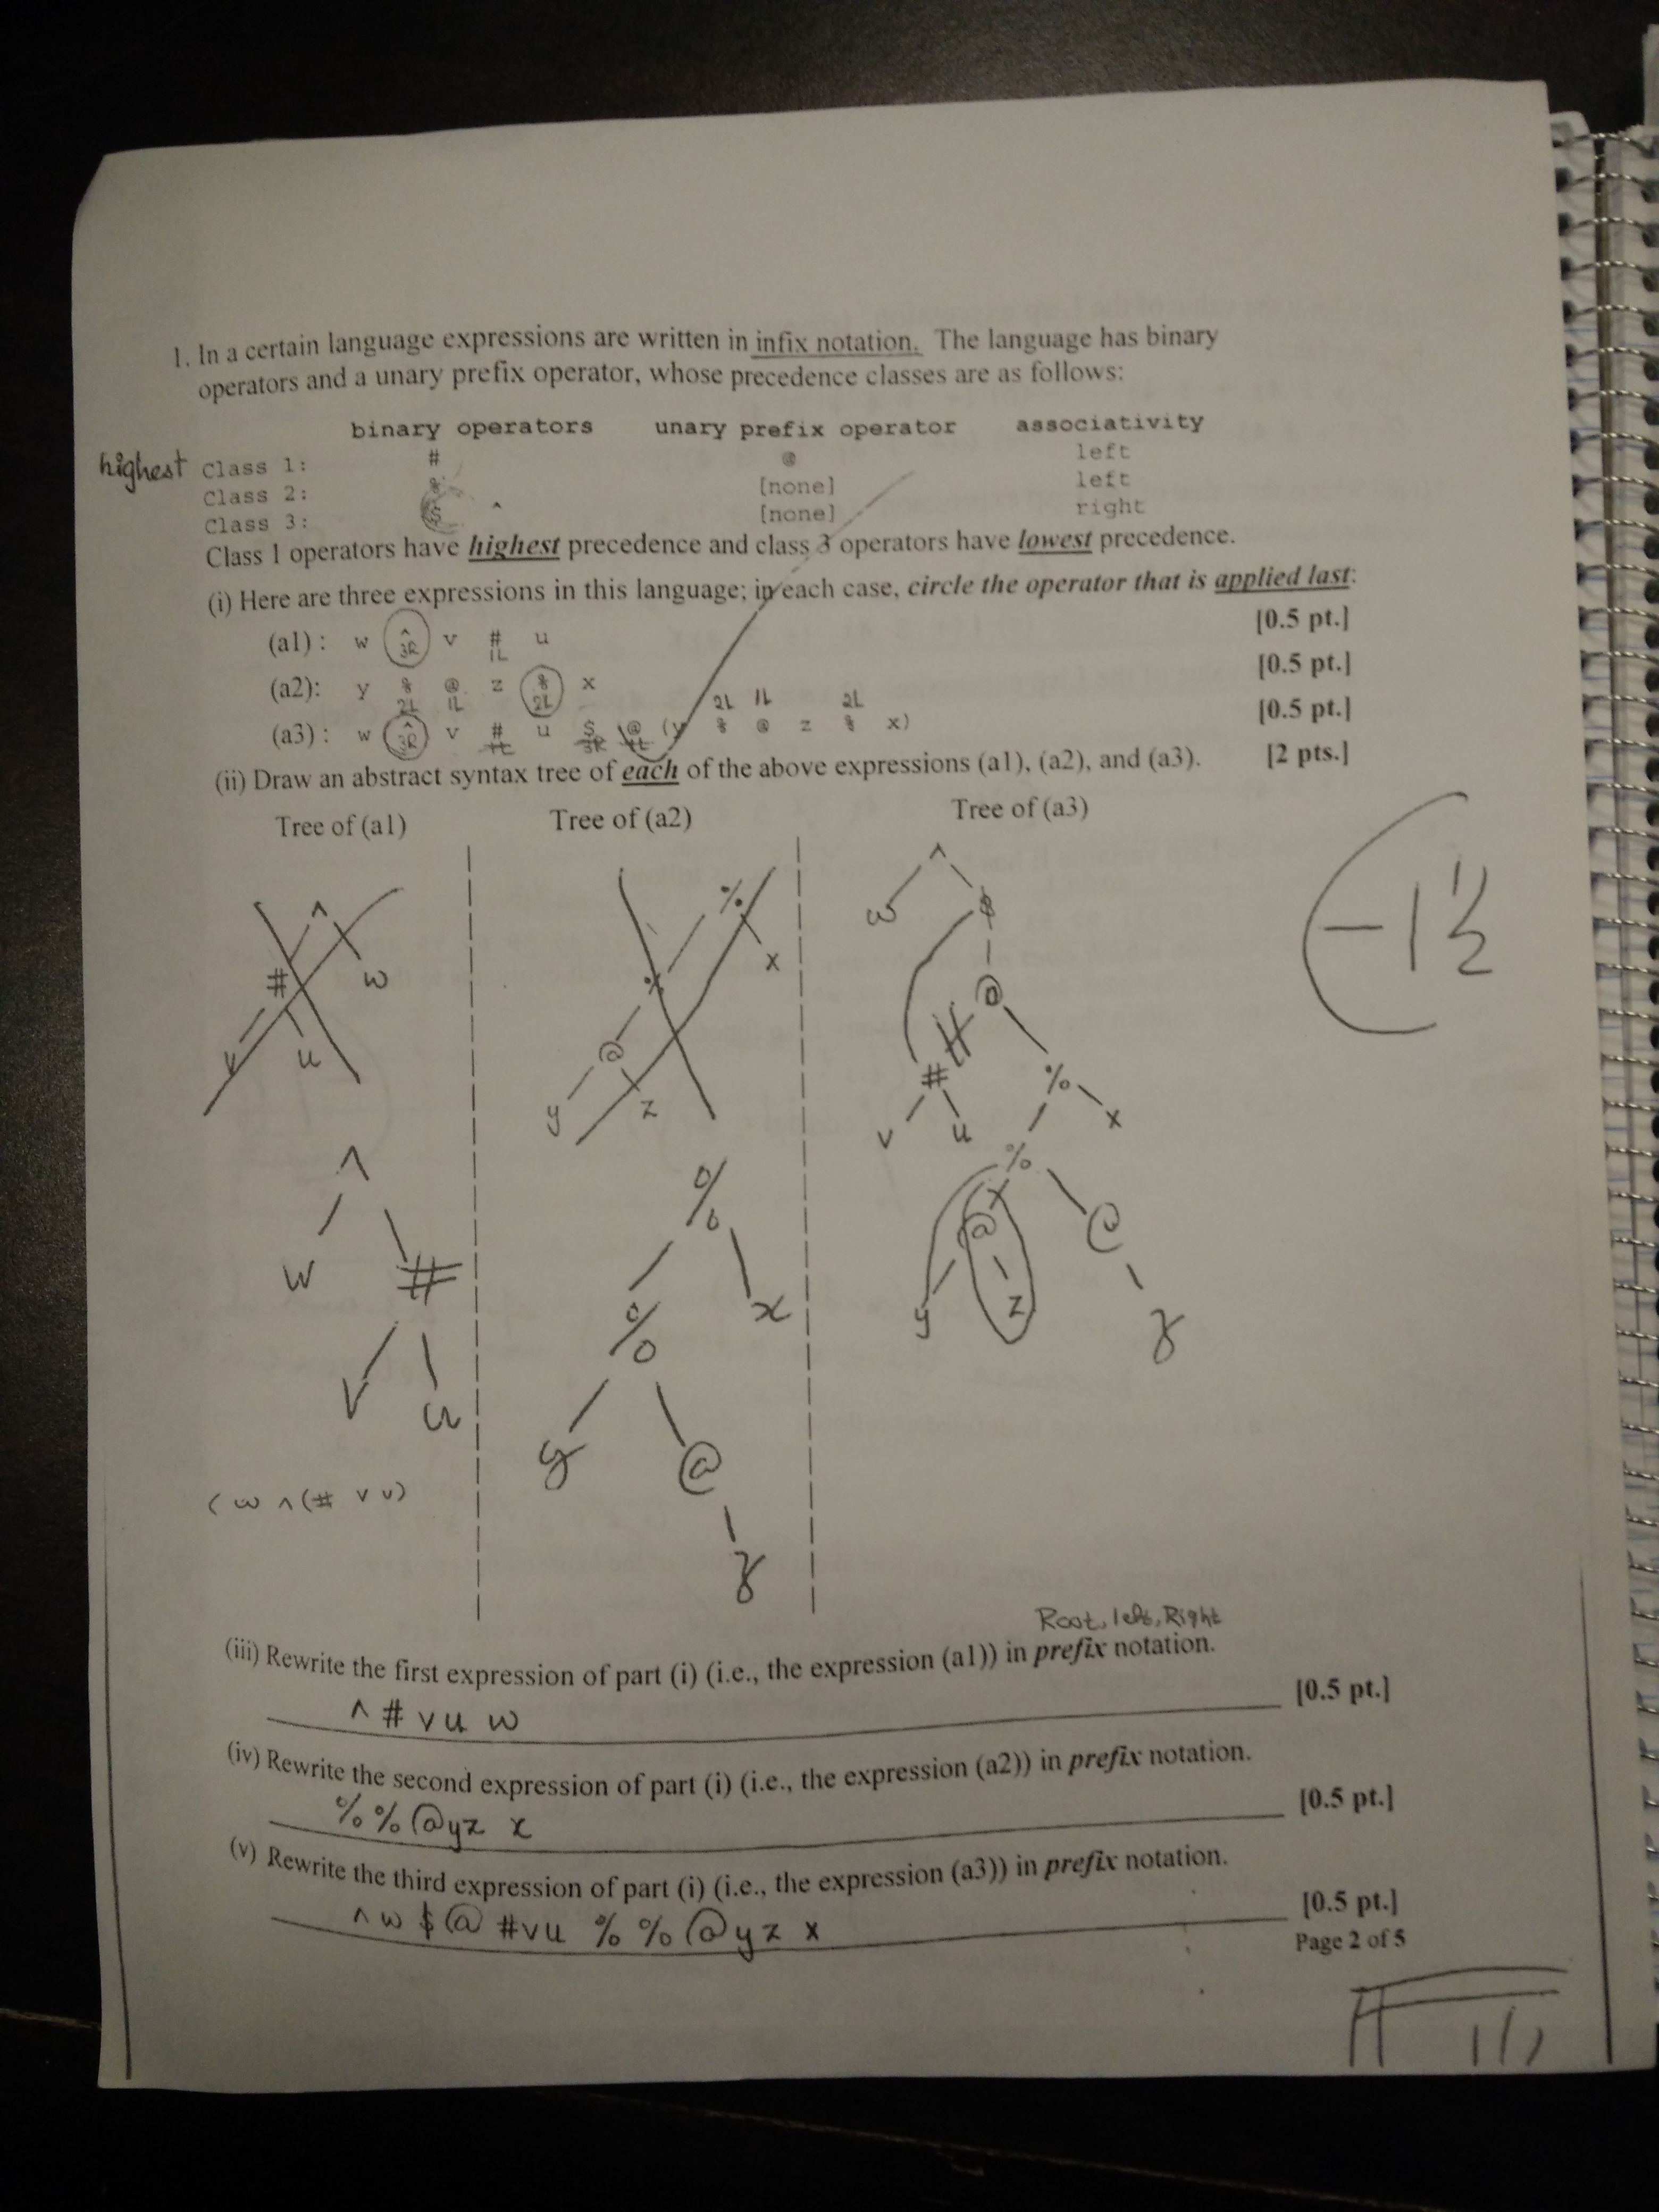 1. In a certain language expressions are written in infix notation. The language has binary
operators and a unary prefix operator, whose precedence classes are as follows:
binary operators unary prefix operator associativity
highest Class 1: # @ left
Class 2: % [none] left
Class 3: $ ^ [none] right
Class 1 operators have highest precedence and class 3 operators have lowest precedence.
(i) Here are three expressions in this language; in each case, circle the operator that is applied last:
(a1): w ^ v # u [0.5 pt.]
3R 1L
(a2): y % @ z % x [0.5 pt.]
2L 1L 2L
2L 1L 2L
(a3): w ^ v # u $ @ (y % @ z % x) [0.5 pt.]
3R 3R
(ii) Draw an abstract syntax tree of each of the above expressions (a1), (a2), and (a3). [2 pts.]
Tree of (a1) Tree of (a2) Tree of (a3)
^
# w
v u
%
% x
@
y z
^
w $
@
# %
v u % x
@ @
y z z
-1 1/2
^
w #
v u
%
% x
y @
z
( w ^ (# v u)
Root, left, Right
(iii) Rewrite the first expression of part (i) (i.e., the expression (a1)) in prefix notation.
^ # v u w [0.5 pt.]
(iv) Rewrite the second expression of part (i) (i.e., the expression (a2)) in prefix notation.
% % @ y z x [0.5 pt.]
(v) Rewrite the third expression of part (i) (i.e., the expression (a3)) in prefix notation.
^ w $ @ # v u % % @ y z x [0.5 pt.]
Page 2 of 5